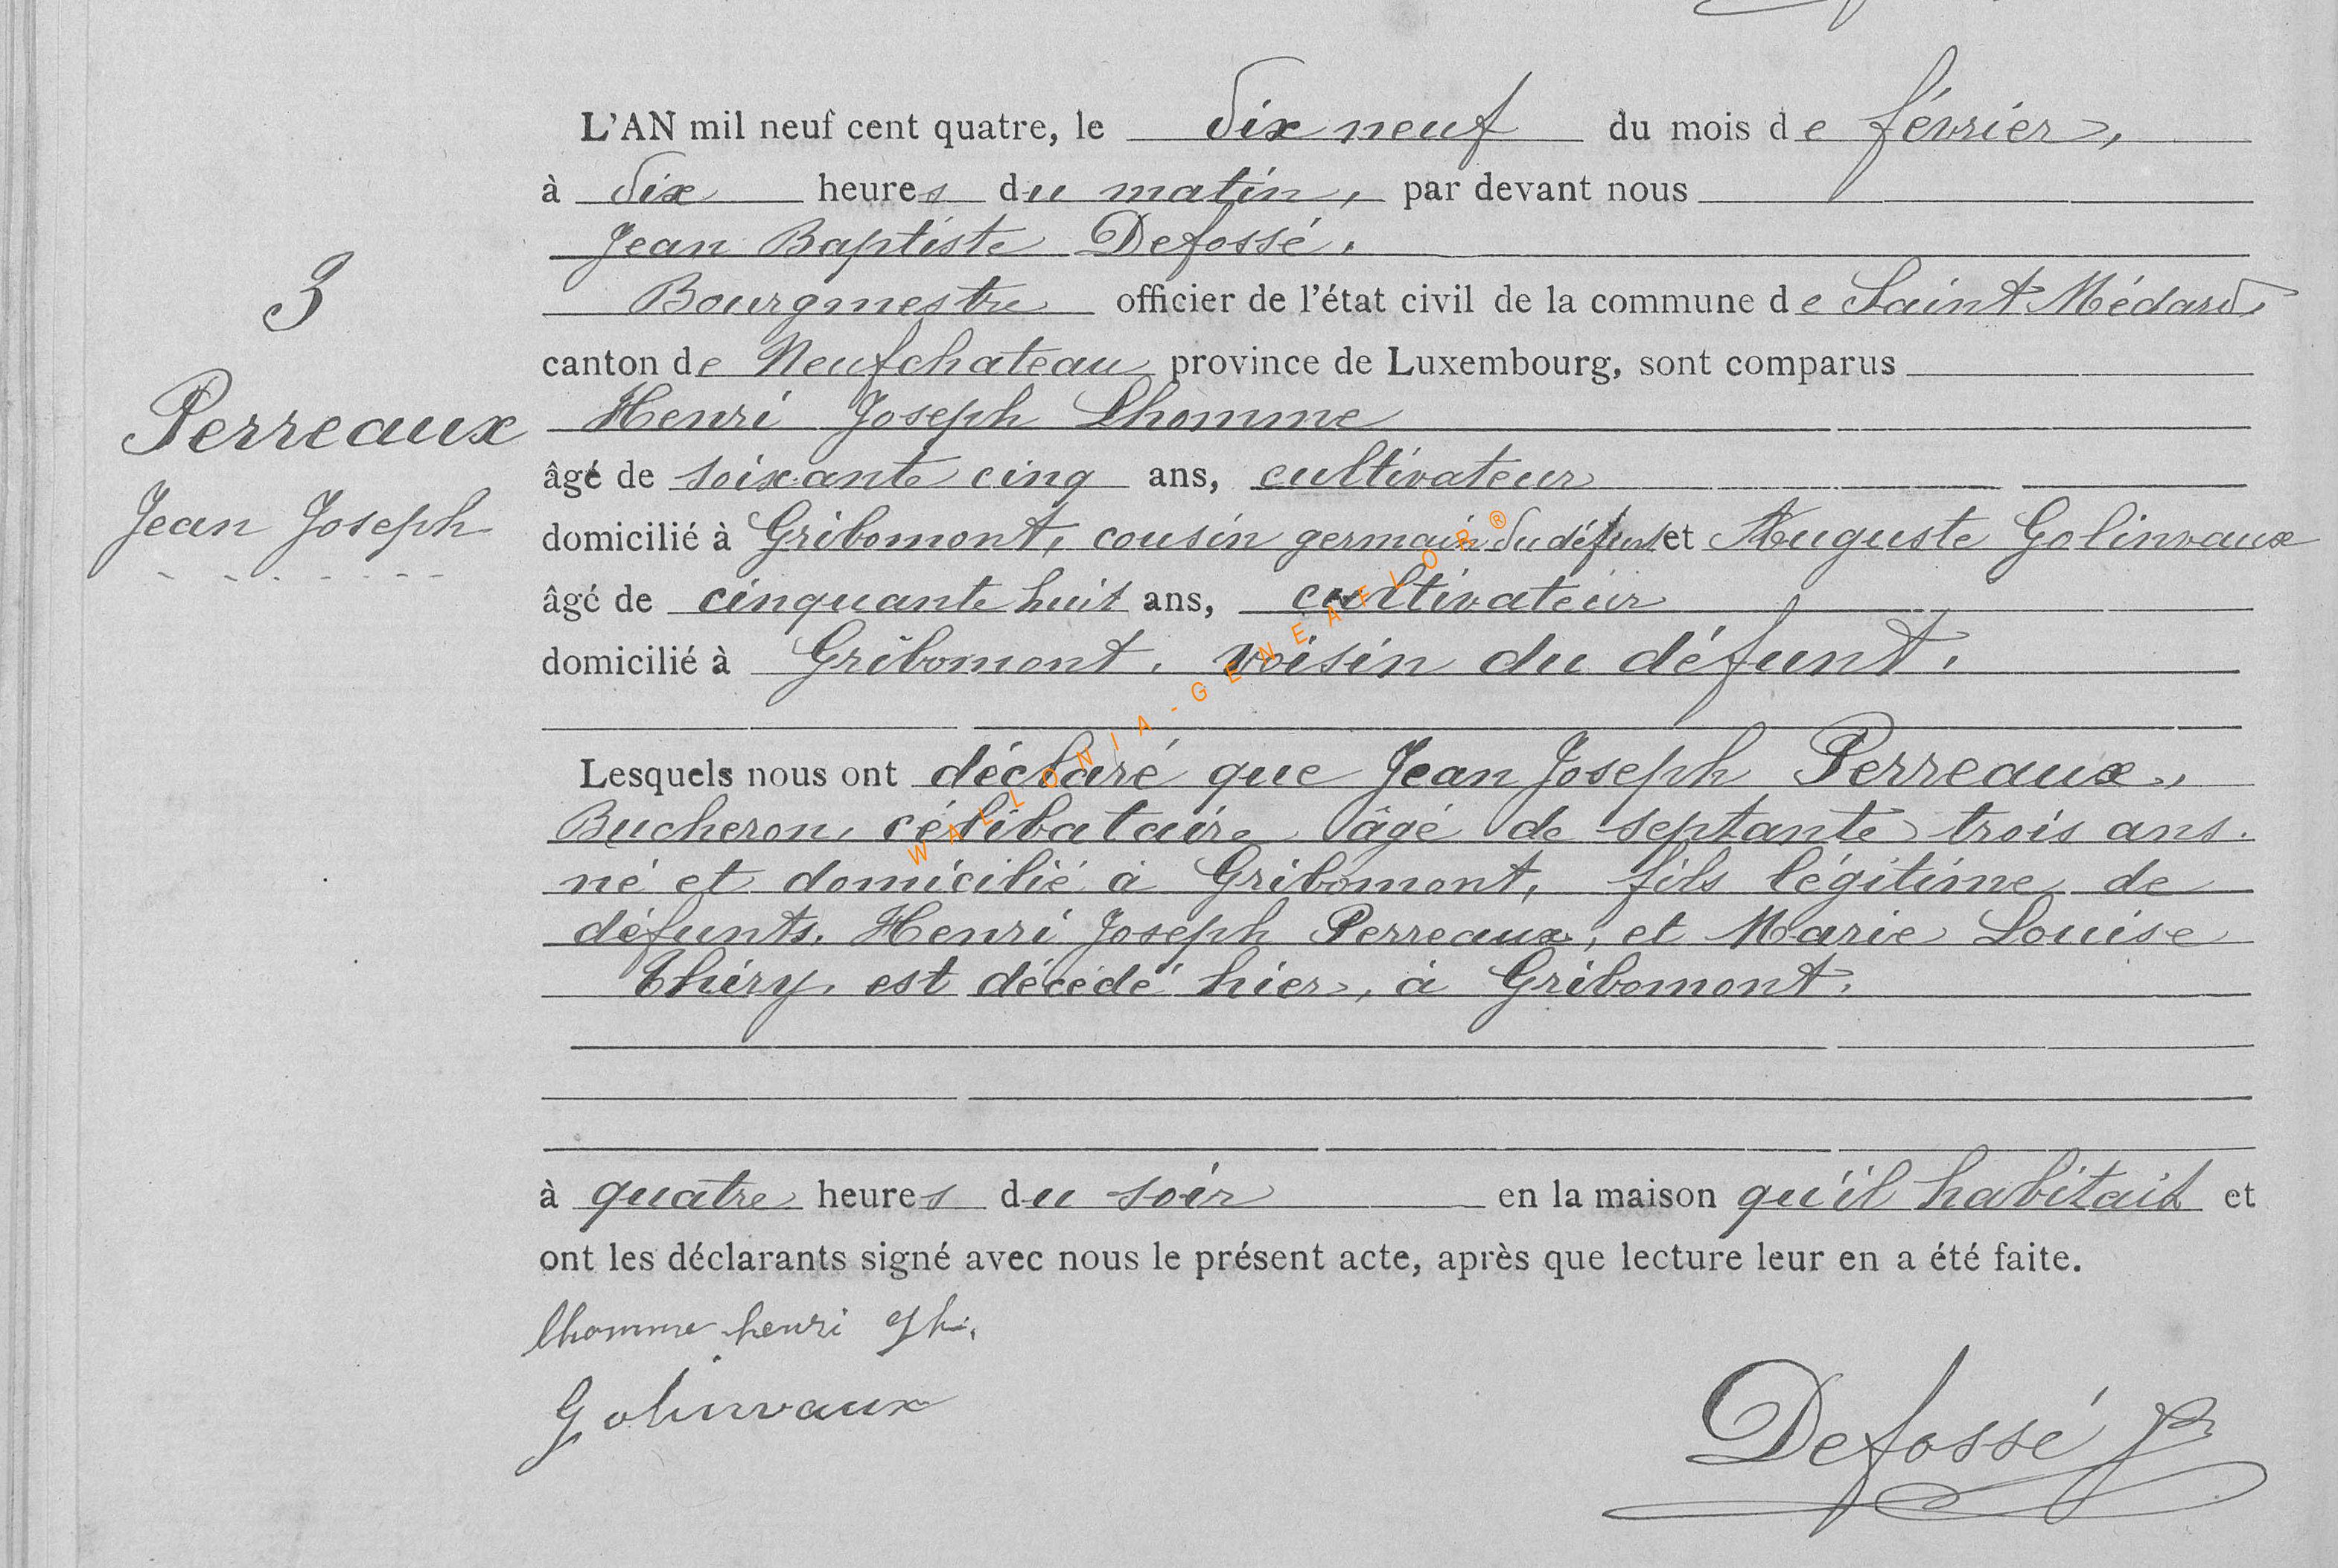 L'AN mil neuf cent quatre, le dix neuf du mois de février,
à dix heures du matin, par devant nous
Jean Baptiste Defossé,
3
Bourgmestre officier de l'état civil de la commune de Saint Médard,
canton de Neufchateau province de Luxembourg, sont comparus
Perreaux
Henri Joseph Lhomme
âgé de soixante cinq ans, cultivateur
Jean Joseph
domicilié à Gribomont, cousin germain du défunt et Auguste Golinvaux
âgé de cinquante huit ans, cultivateur
domicilié à Gribomont, voisin du défunt.
Lesquels nous ont déclaré que Jean Joseph Perreaux,
Bucheron, célibataire âgé de septante trois ans.
né et domicilié à Gribomont, fils légitime de
défunts. Henri Joseph Perreaux, et Marie Louise
Thiry, est décédé hier, à Gribomont.
à quatre heures du soir en la maison qu'il habitait et
ont les déclarants signé avec nous le présent acte, après que lecture leur en a été faite.
lhomme henri jph.
Golinvaux
Defossé
WALLONIA-GENEAFLOR®